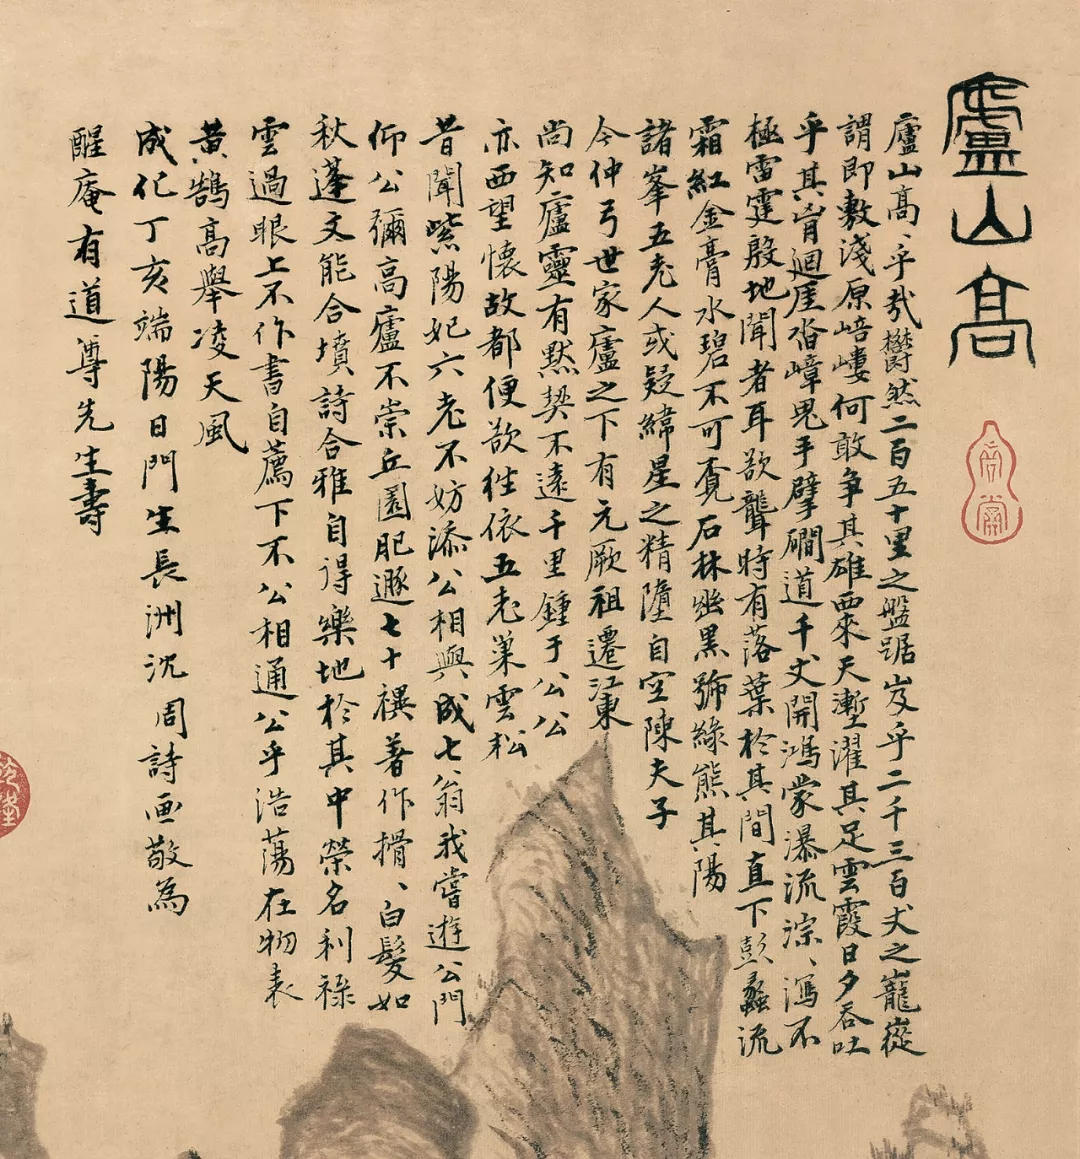 廬山高
廬山高、乎哉欝然二百五十里之盤踞岌乎二千三百丈之巃嵷
謂即敷淺原嵱嶁何敢争其雄西來天塹濯其足雲霞日夕吞吐
乎其胷迴厓沓嶂鬼手擘磵道千丈開鴻蒙瀑流淙、瀉不
極雷霆殷地聞者耳欲聾時有落葉於其間直下彭蠡流
霜紅金膏水碧不可覔石林幽黑號綠熊其陽
諸峯五老人或疑緯星之精墮自空陳夫子
今仲弓世家廬之下有元厥祖遷江東
尚知廬靈有默契不遠千里鍾于公公
亦西望懷故都便欲徃依五老巢雲松
昔聞紫陽妃六老不妨添公相與成七翁我嘗遊公門
仰公彌高廬不崇丘園肥遯七十禩著作搰、白髮如
秋蓬文能合墳詩合雅自得樂地於其中榮名利祿
雲過眼上不作書自薦下不公相通公乎浩蕩在物表
黄鵠高舉凌天風
成化丁亥端陽日門生長洲沈周詩画敬為
醒庵有道尊先生壽